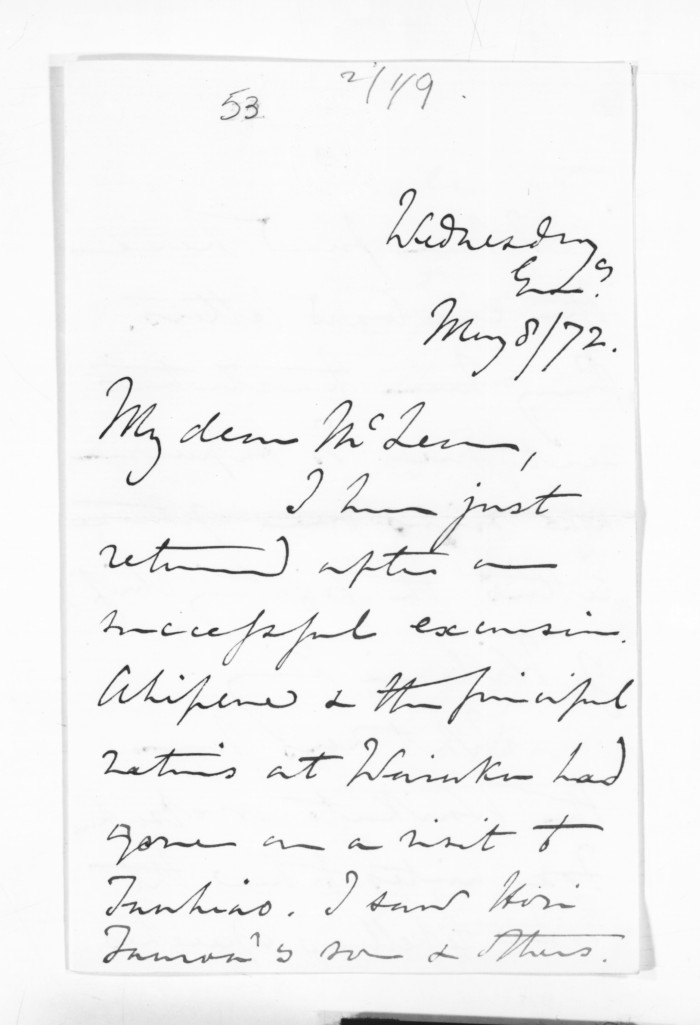 53
2/1/9.
Wednesday
Evg.
May 8/72.
My dear McLean,
I have just
returned after a
successful excursion.
Ahipene & the principal
natives at Wairaka had
gone on a visit to
Tawhiao. I saw Hori
Tamoa's son & others.